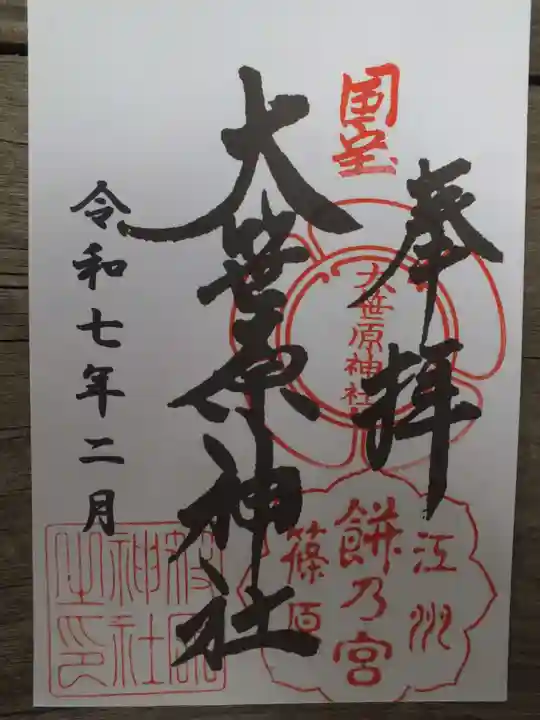 国宝
奉拝
大笹原神社
大笹原神社
江州
餅乃宮
篠原
令和七年二月